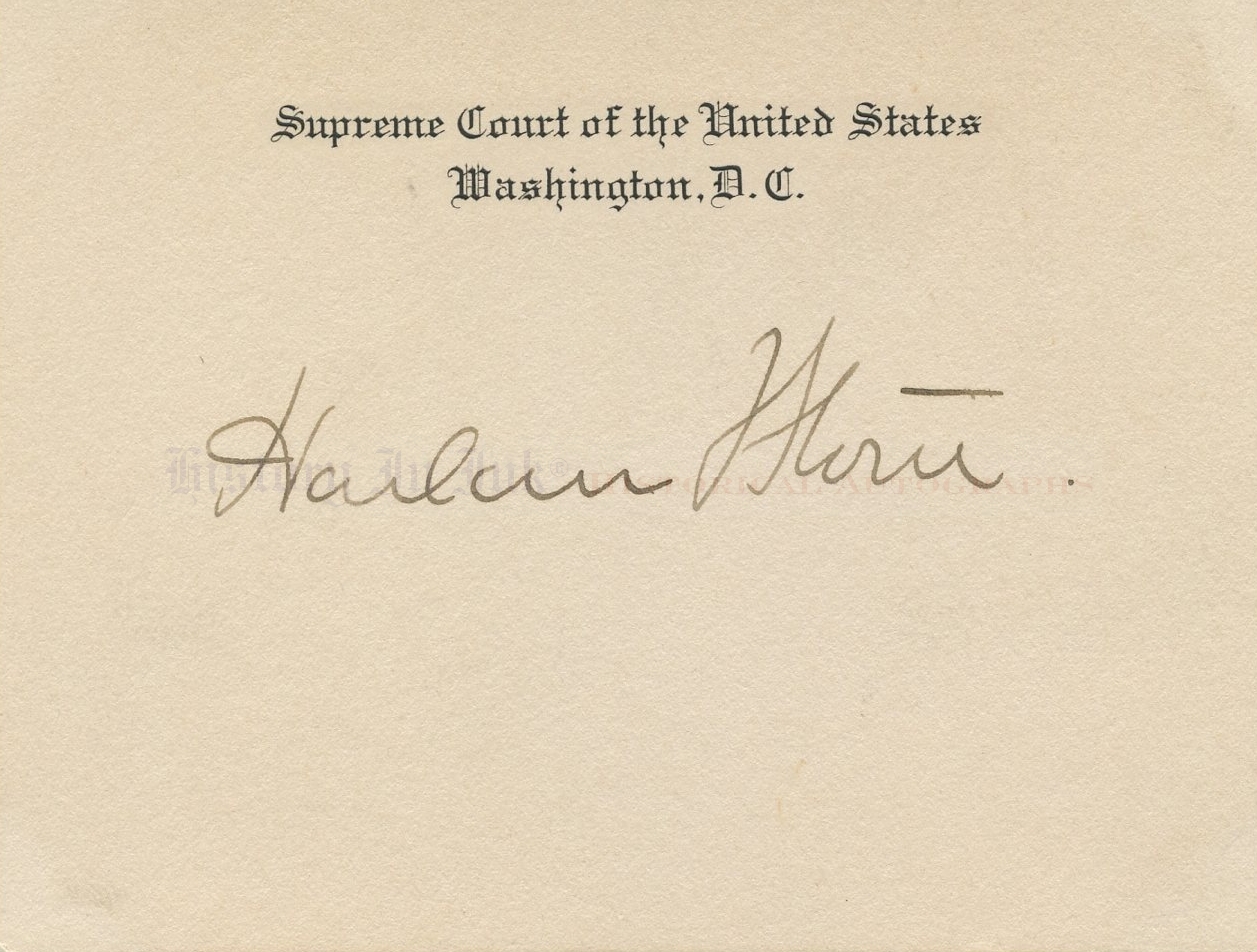 Supreme Court of the United States
Washington, D. C.
Harlan F Stone
History In Ink® HISTORICAL AUTOGRAPHS